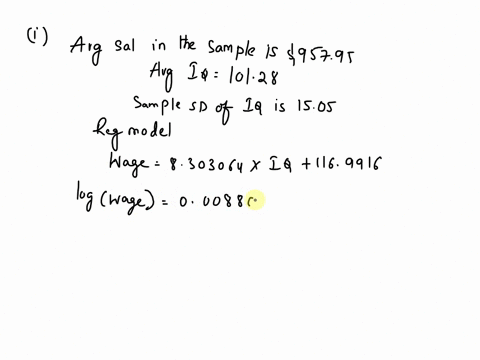 (i) Avg sal in the sample is $957.95
Avg IQ = 101.28
Sample SD of IQ is 15.05
Reg model
Wage = 8.303064 x IQ + 116.9916
log (wage) = 0.0088